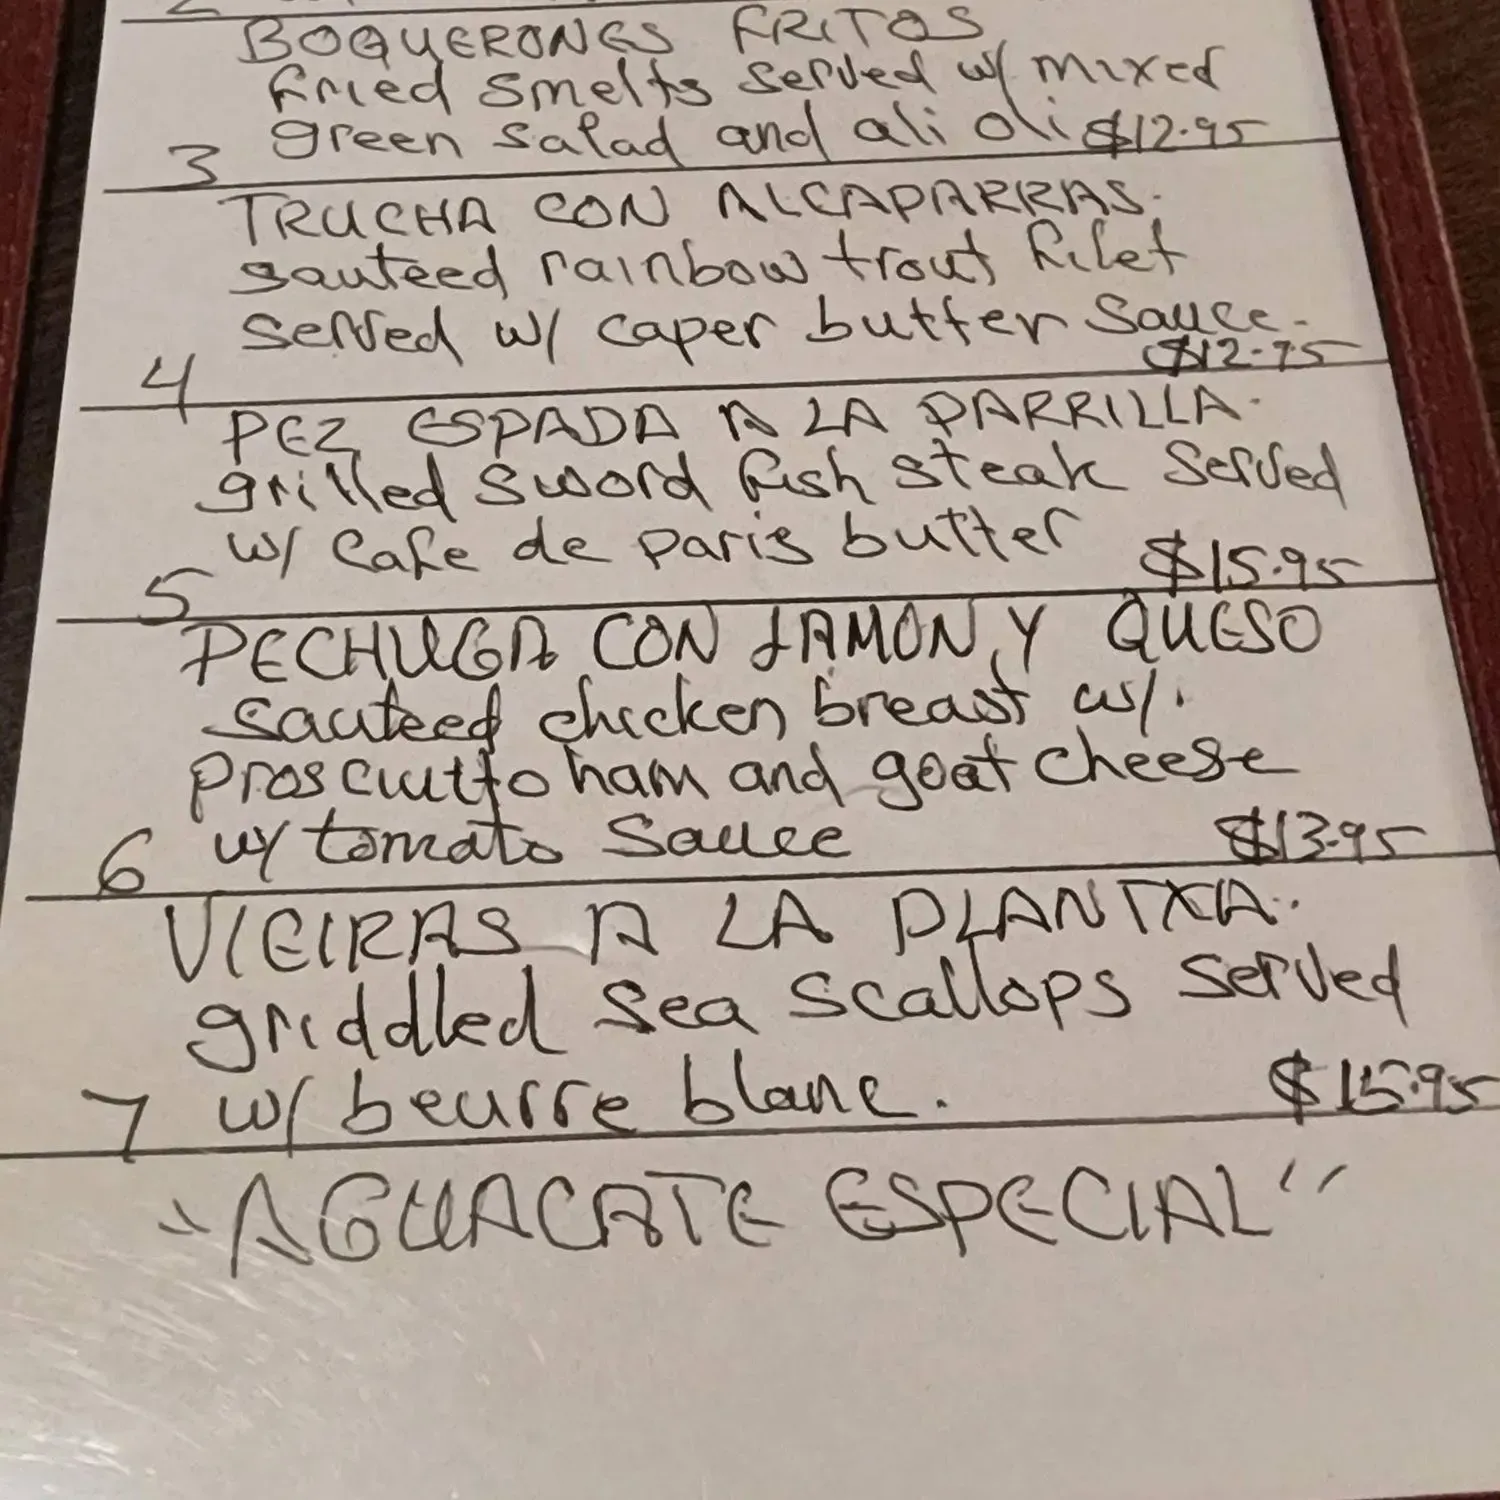 BOQUERONES FRITOS
fried smelts served w/ mixed
green salad and ali oli $12.95
3
TRUCHA CON ALCAPARRAS.
sauteed rainbow trout filet
served w/ caper butter sauce.
$12.75
4
PEZ ESPADA A LA PARRILLA.
grilled sword fish steak served
w/ Cafe de paris butter $15.95
5
PECHUGA CON JAMON Y QUESO
sauteed chicken breast w/.
prosciutto ham and goat cheese
6 w/ tomato sauce $13.95
VIEIRAS A LA PLANTXA..
griddled sea scallops served
7 w/ beurre blanc. $15.95
"AGUACATE ESPECIAL"